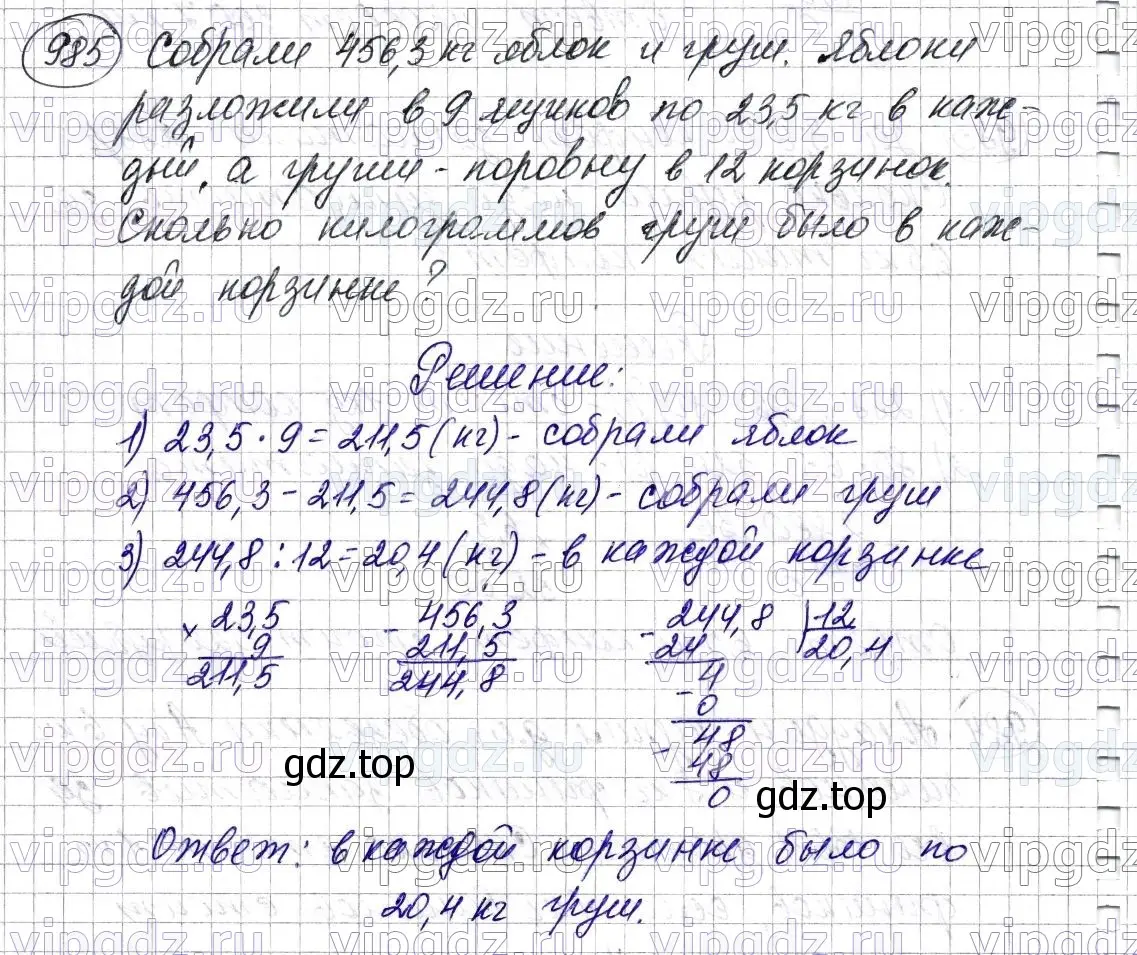 985 Собрали 456,3 кг яблок и груш. Яблоки
разложили в 9 ящиков по 23,5 кг в каж-
дый, а груши - поровну в 12 корзинок.
Сколько килограммов груш было в каж-
дой корзинке?
Решение:
1) 23,5 · 9 = 211,5 (кг) - собрали яблок
2) 456,3 - 211,5 = 244,8 (кг) - собрали груш
3) 244,8 : 12 = 20,4 (кг) - в каждой корзинке
× 23,5
9
211,5
- 456,3
211,5
244,8
- 244,8 | 12
24 20,4
- 4
0
- 48
48
0
gdz.top
gdz.top
Ответ: в каждой корзинке было по
20,4 кг груш.
vipgdz.ru